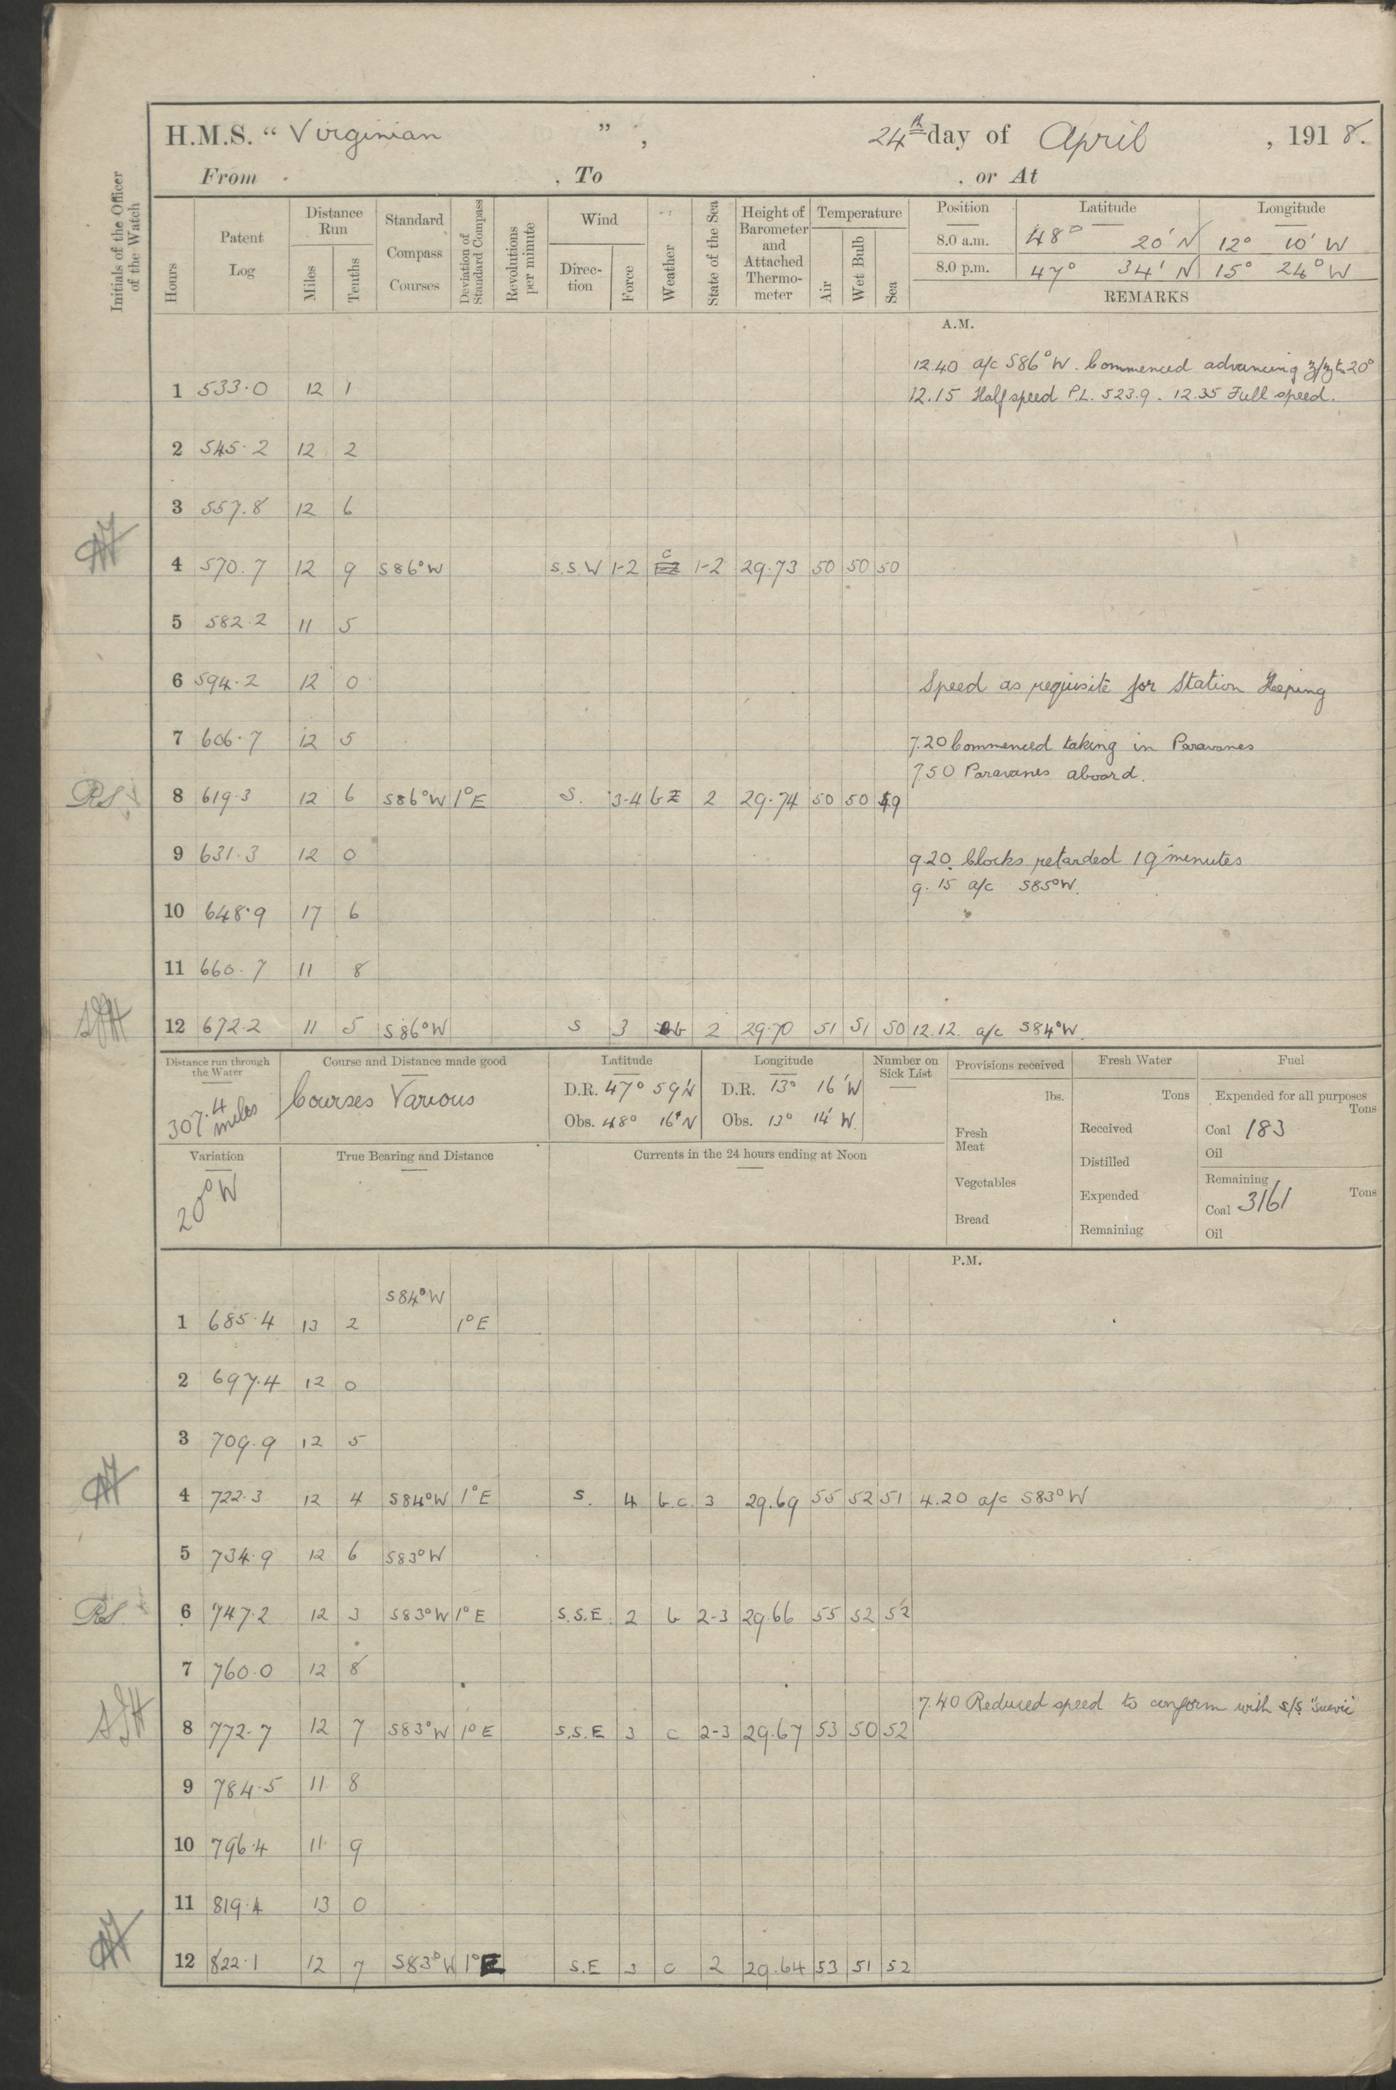 H.M.S. " Virginian " , 24th day of April , 1918.
From . To . or At
Initials of the Officer of the Watch
Hours Patent Log Distance Run Miles Tenths Standard Compass Courses Deviation of Standard Compass Revolutions per minute Wind Direction Force Weather State of the Sea Height of Barometer and Attached Thermometer Temperature Air Wet Bulb Sea Position Latitude Longitude
8.0 a.m. 48° 20' N 12° 10' W
8.0 p.m. 47° 34' N 15° 24° W
REMARKS
A.M.
12.40 a/c S86°W. Commenced advancing z/z to 20°
1 533.0 12 1 12.15 Half speed P.L. 523.9. 12.35 Full speed.
2 545.2 12 2
3 557.8 12 6
4 570.7 12 9 S86°W S.S.W 1-2 c 1-2 29.73 50 50 50
5 582.2 11 5
6 594.2 12 0 Speed as requisite for Station Keeping
7 606.7 12 5 7.20 Commenced taking in Paravanes
7 50 Paravanes aboard.
8 619.3 12 6 S86°W 1°E S. 3-4 bz 2 29.74 50 50 49
9 631.3 12 0 9.20. Clocks retarded 19 minutes
9.15 a/c S85°W.
10 648.9 17 6
11 660.7 11 8
12 672.2 11 5 S86°W S 3 2 29.70 51 51 50 12.12 a/c S84°W.
Distance run through the Water Course and Distance made good Latitude Longitude Number on Sick List Provisions received Fresh Water Fuel
307.4 miles Courses Various D.R. 47° 59'N D.R. 13° 16'W lbs. Tons Expended for all purposes Tons
Obs. 48° 16'N Obs. 13° 14' W. Fresh Meat Received Coal 183
Oil
Variation True Bearing and Distance Currents in the 24 hours ending at Noon Distilled
20°W Vegetables Expended Remaining Tons
Coal 3161
Bread Remaining Oil
P.M.
S84°W
1 685.4 13 2 1°E
2 697.4 12 0
3 709.9 12 5
4 722.3 12 4 S84°W 1°E S. 4 b.c. 3 29.69 55 52 51 4.20 a/c S83°W
5 734.9 12 6 S83°W
6 747.2 12 3 S83°W 1°E S.S.E. 2 b 2-3 29.66 55 52 52
7 760.0 12 8
7.40 Reduced speed to conform with S/S "Suevic"
8 772.7 12 7 S83°W 1°E S.S.E 3 c 2-3 29.67 53 50 52
9 784.5 11 8
10 796.4 11 9
11 819.4 13 0
12 822.1 12 7 S83°W 1°E S.E 3 c 2 29.64 53 51 52